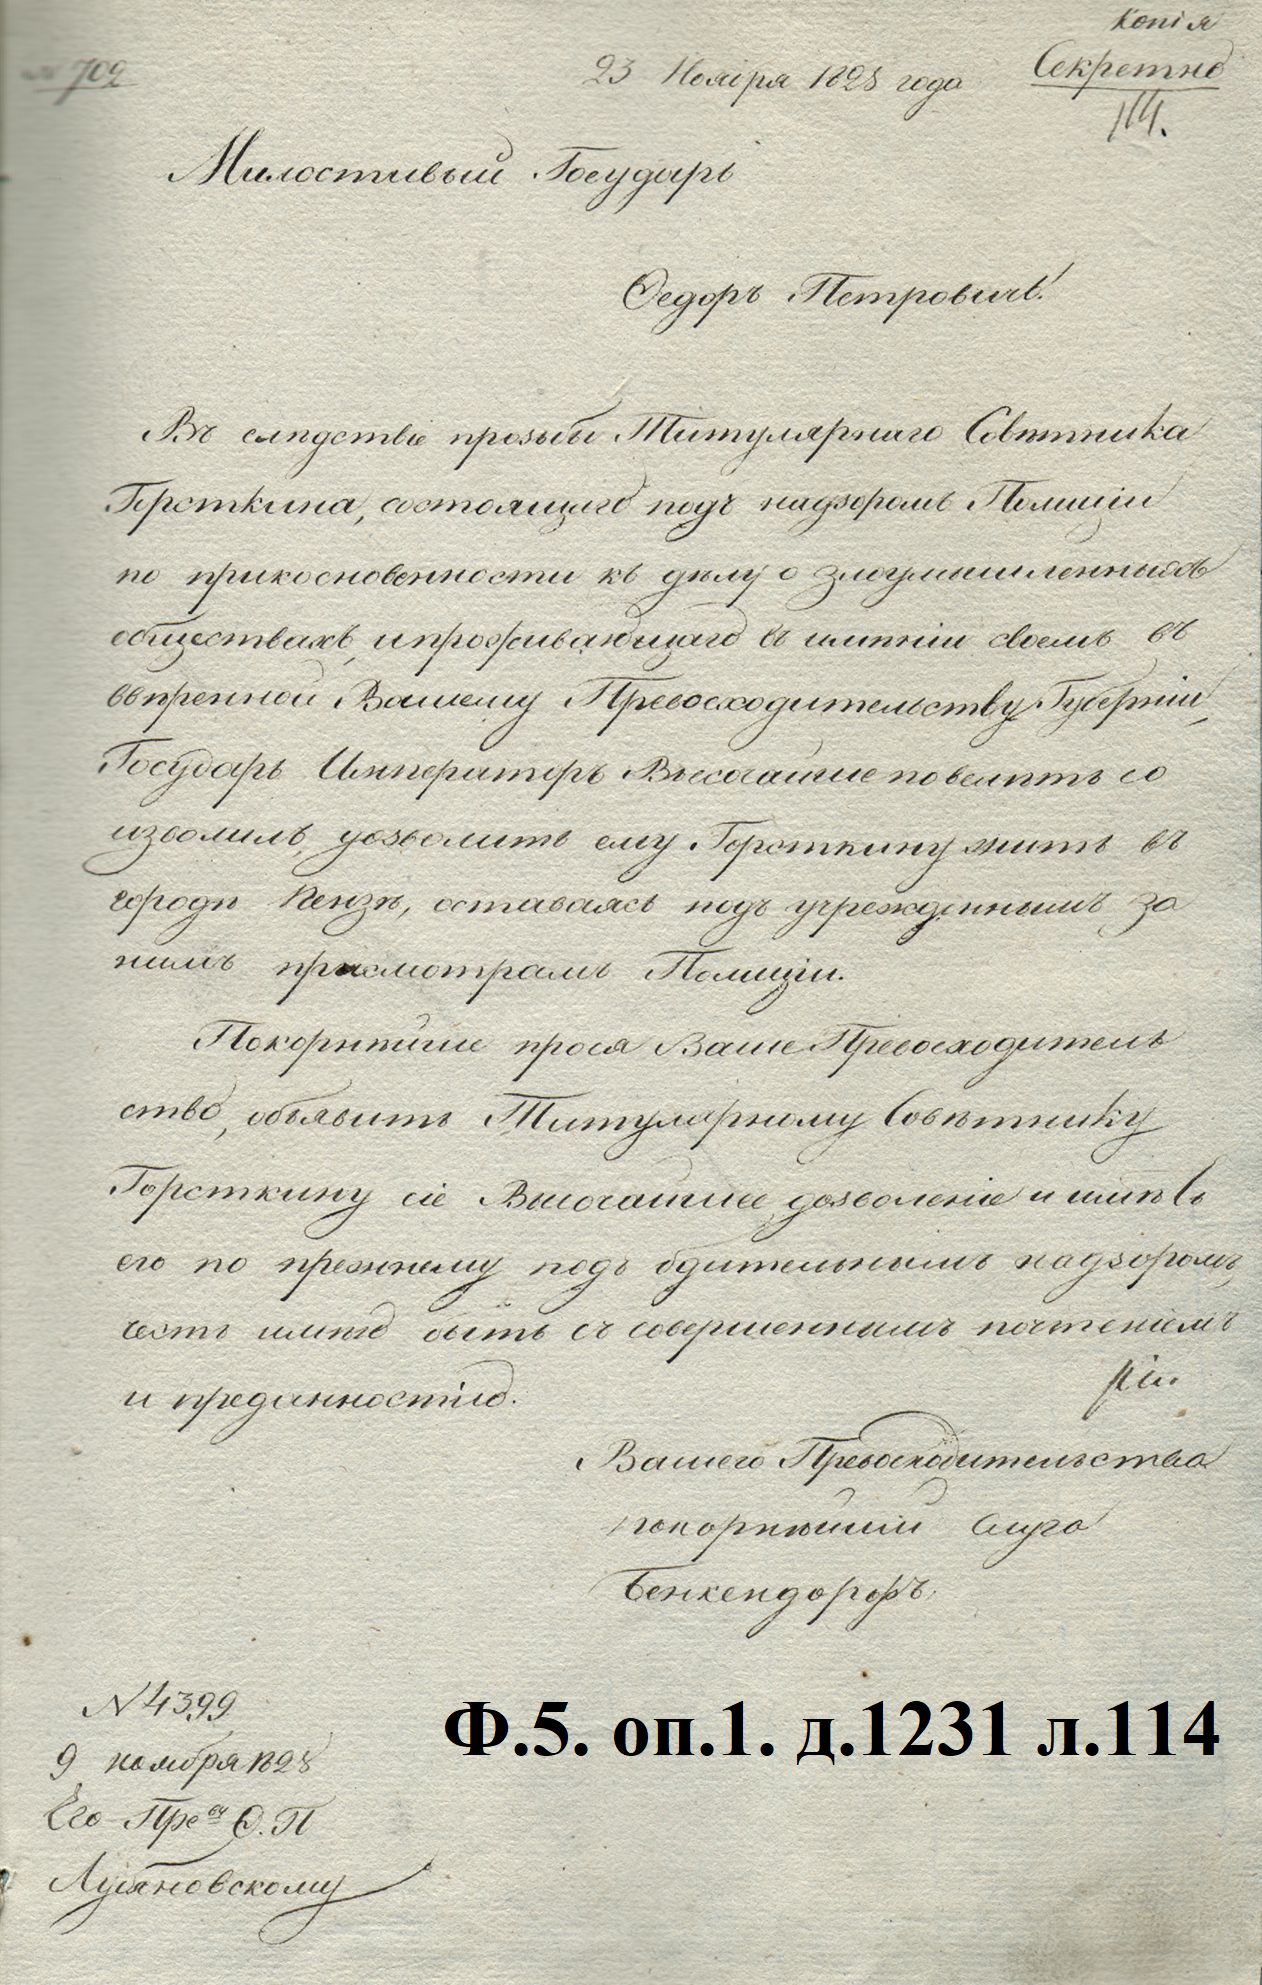 Копія
№ 702
23 Ноября 1828 года
Секретно
114.
Милостивый Государь
Ѳедоръ Петровичь!
Въ слѣдствіе прозьбы Титулярнаго Совѣтника
Горсткина, состоящаго подъ надзоромъ Полиціи
по прикосновенности къ дѣлу о злоумышленныхъ
обществахъ, и проживающаго въ имѣніи своемъ въ
ввѣренной Вашему Превосходительству Губерніи,
Государь Императоръ Высочайше повелѣть со
изволилъ, дозволить ему Горсткину жить въ
городѣ Пензѣ, оставаясь подъ учрежденнымъ за
нимъ присмотромъ Полиціи.
Покорнѣйше прося Ваше Превосходитель
ство, объявить Титулярному Совѣтнику
Горсткину сіе Высочайшее дозволеніе и имѣть
его по прежнему подъ бдительнымъ надзоромъ,
честь имѣю быть съ совершеннымъ почтеніемъ
и преданностію.
Вашего Превосходительства
покорнѣйшій слуга
Бенкендорфъ.
N 4399
9 ноября 1828
Его Прев Ѳ. П
Лубяновскому
Ф.5. оп.1. д.1231 л.114